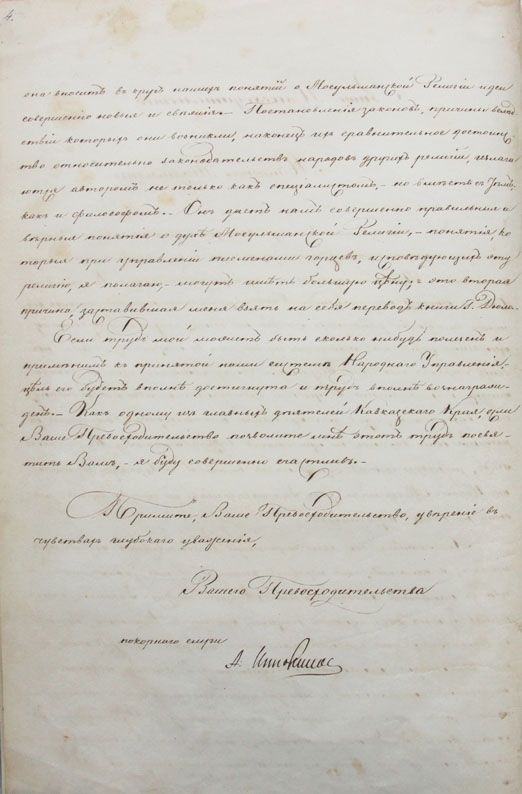 4.
она вноситъ въ кругъ нашихъ понятій о Мосульманской Религіи идеи
совершенно новыя и свѣжія. Постановленія законовъ, причины вслѣд-
ствіи которыхъ они возникли, наконецъ ихъ сравнительное достоин-
ство относительно законодательствъ народовъ другихъ религій, излага-
ются авторомъ не только какъ спеціалистомъ, – но вмѣстѣ съ тѣмъ
какъ и философомъ. – Онъ даетъ намъ совершенно правильныя и
вѣрныя понятія о духѣ Мосульманской Религіи, – понятія, ко-
торыя при управленіи племенами горцевъ, исповѣдующихъ эту
религію, я полагаю, – могутъ имѣть большую цѣну; это вторая
причина, заставившая меня взять на себя переводъ книги Г. Дюма.
Если трудъ мой можетъ быть сколько нибудь полезенъ и
примѣнимъ къ принятой нами системѣ Народнаго Управленія, –
цѣль его будетъ вполнѣ достигнута и трудъ вполнѣ вознагражд-
денъ. – Какъ одному изъ главныхъ дѣятелей Кавказскаго Края если
Ваше Превосходительство позволите мнѣ этотъ трудъ посвя-
тить Вамъ, – я буду совершенно счастливъ. –
Примите, Ваше Превосходительство, увѣреніе въ
чувствахъ глубокаго уваженія,
Вашего Превосходительства
покорнаго слуги
А.